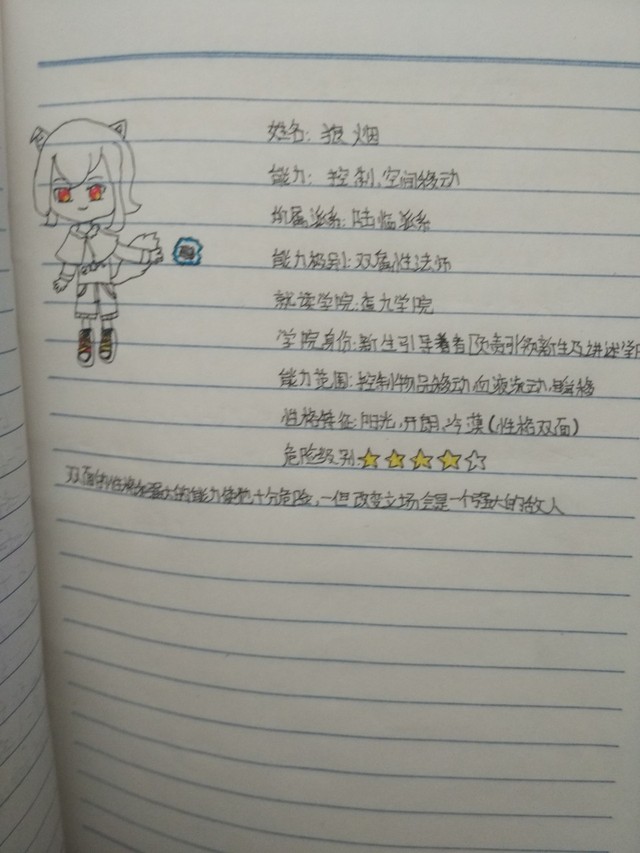 姓名: 狼烟
能力: 控制,空间移动
所属派系: 陆临派系
能力级别: 双属性法师
就读学院: 壹九学院
学院身份:新生引导着者[负责引领新生及讲述学
能力范围:控制物品移动,血液流动,瞬移
性格特征:阳光,开朗,冷漠(性格双面)
危险级别:
双面的性格和强大的能力使他十分危险,一但改变立场会是一个强大的敌人